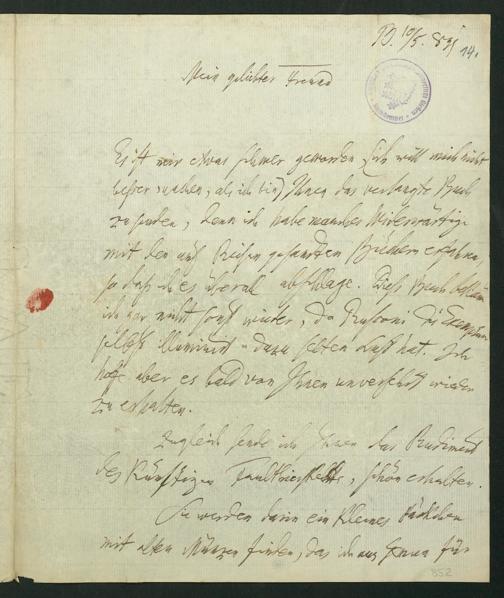 B. 10/5. 831
14.
Mein geliebter Freund
Es ist mir etwas schwer geworden (ich will mich nicht
besser machen, als ich bin) Ihnen das verlangte Buch
zu senden, denn ich habe manches Widerwärtige
mit den auf Reisen gesandten Büchern erfahren,
so daß ich es überall abschlage. Dieß Buch
ich gar nicht sonst wieder, da die
selbst illuminirt u dazu selten Lust hat. Ich
hoffe aber es bald von Ihnen unversehrt wieder
zu erhalten.
Zugleich sende ich Ihnen das Rudiment
des Künftigen, schön erhalten.
Sie werden darin ein kleines Päckchen
mit alten Münzen finden, das ich aus für
852